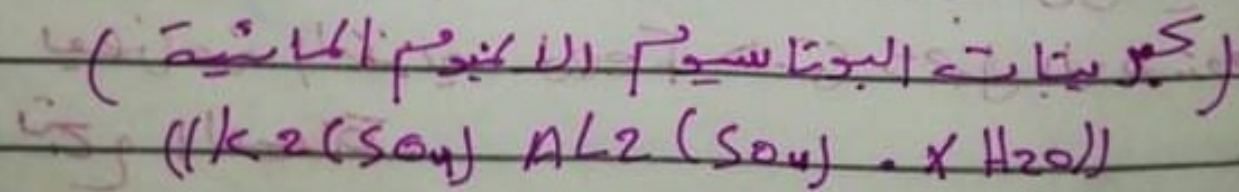 (كبريتات البوتاسيوم الالمنيوم المائية)
((K2(SO4) AL2(SO4) . X H2O))